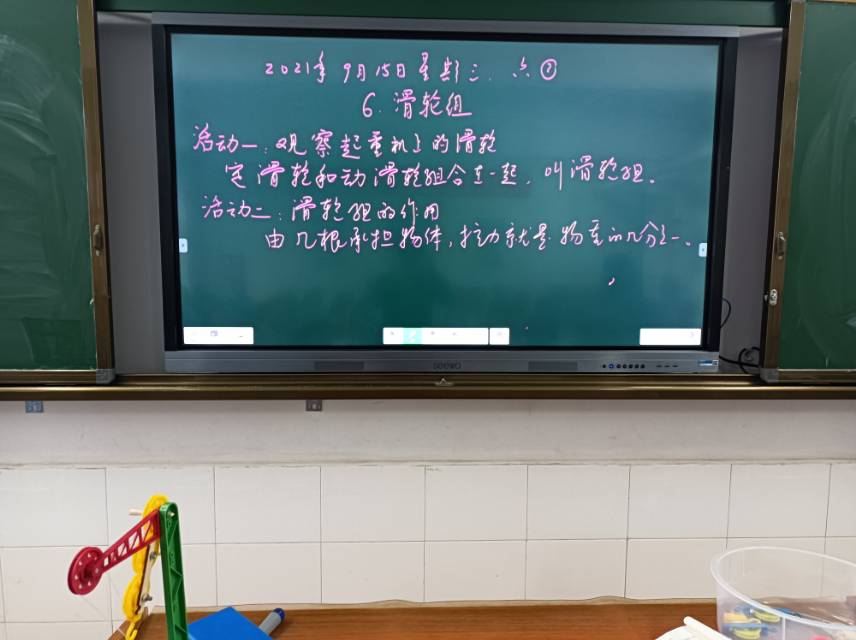 2021年9月15日星期三. 六②
6.滑轮组
活动一:观察起重机上的滑轮
定滑轮和动滑轮组合在一起,叫滑轮组.
活动二:滑轮组的作用
由几根承担物体,拉力就是物重的几分之一。
seewo